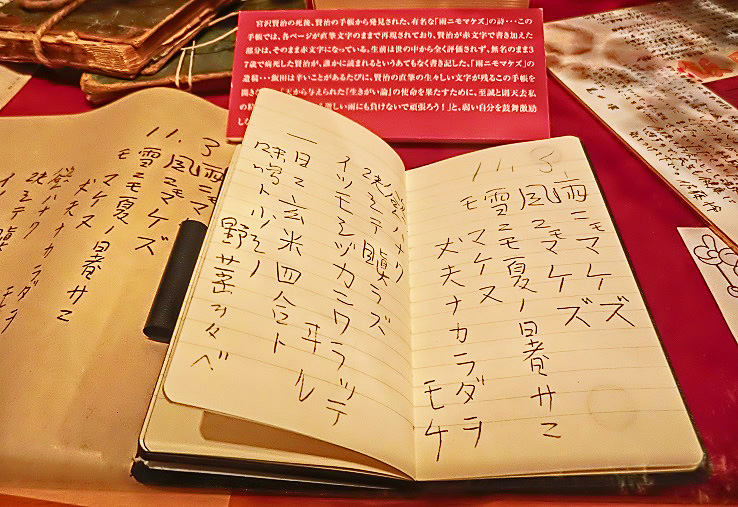 宮沢賢治の死後、賢治の手帳から発見された、有名な「雨ニモマケズ」の詩・・・この
手帳では、各ページが直筆文字のままで再現されており、賢治が赤文字で書き加えた
部分は、そのまま赤文字になっている。生前は世の中から全く評価されず、無名のまま3
7歳で病死した賢治が、誰かに読まれるというあてもなく書き記した、「雨ニモマケズ」の
遺稿・・・飯田は辛いことがあるたびに、賢治の直筆の生々しい文字が残るこの手帳を
開き
「天から与えられた『生きがい論』の使命を果たすために、至誠と則天去私
激しい雨にも負けないで頑張ろう!」と、弱い自分を鼓舞激励
し
11. 3.
雨ニモマケズ
風ニモマケズ
雪ニモ夏ノ暑サニ
モマケヌ
丈夫ナカラダヲ
モケ
慾ハナク
決シテ瞋ラズ
イツモシヅカニワラッテ
ヰル
一日ニ玄米四合ト
味噌ト少シノ
野菜ヲタベ
11. 3
雨ニモマ
風ニモマケズ
雪ニモ夏ノ暑サニ
モマケヌ
丈夫ナカラダヲ
慾ハナク
決シテ瞋